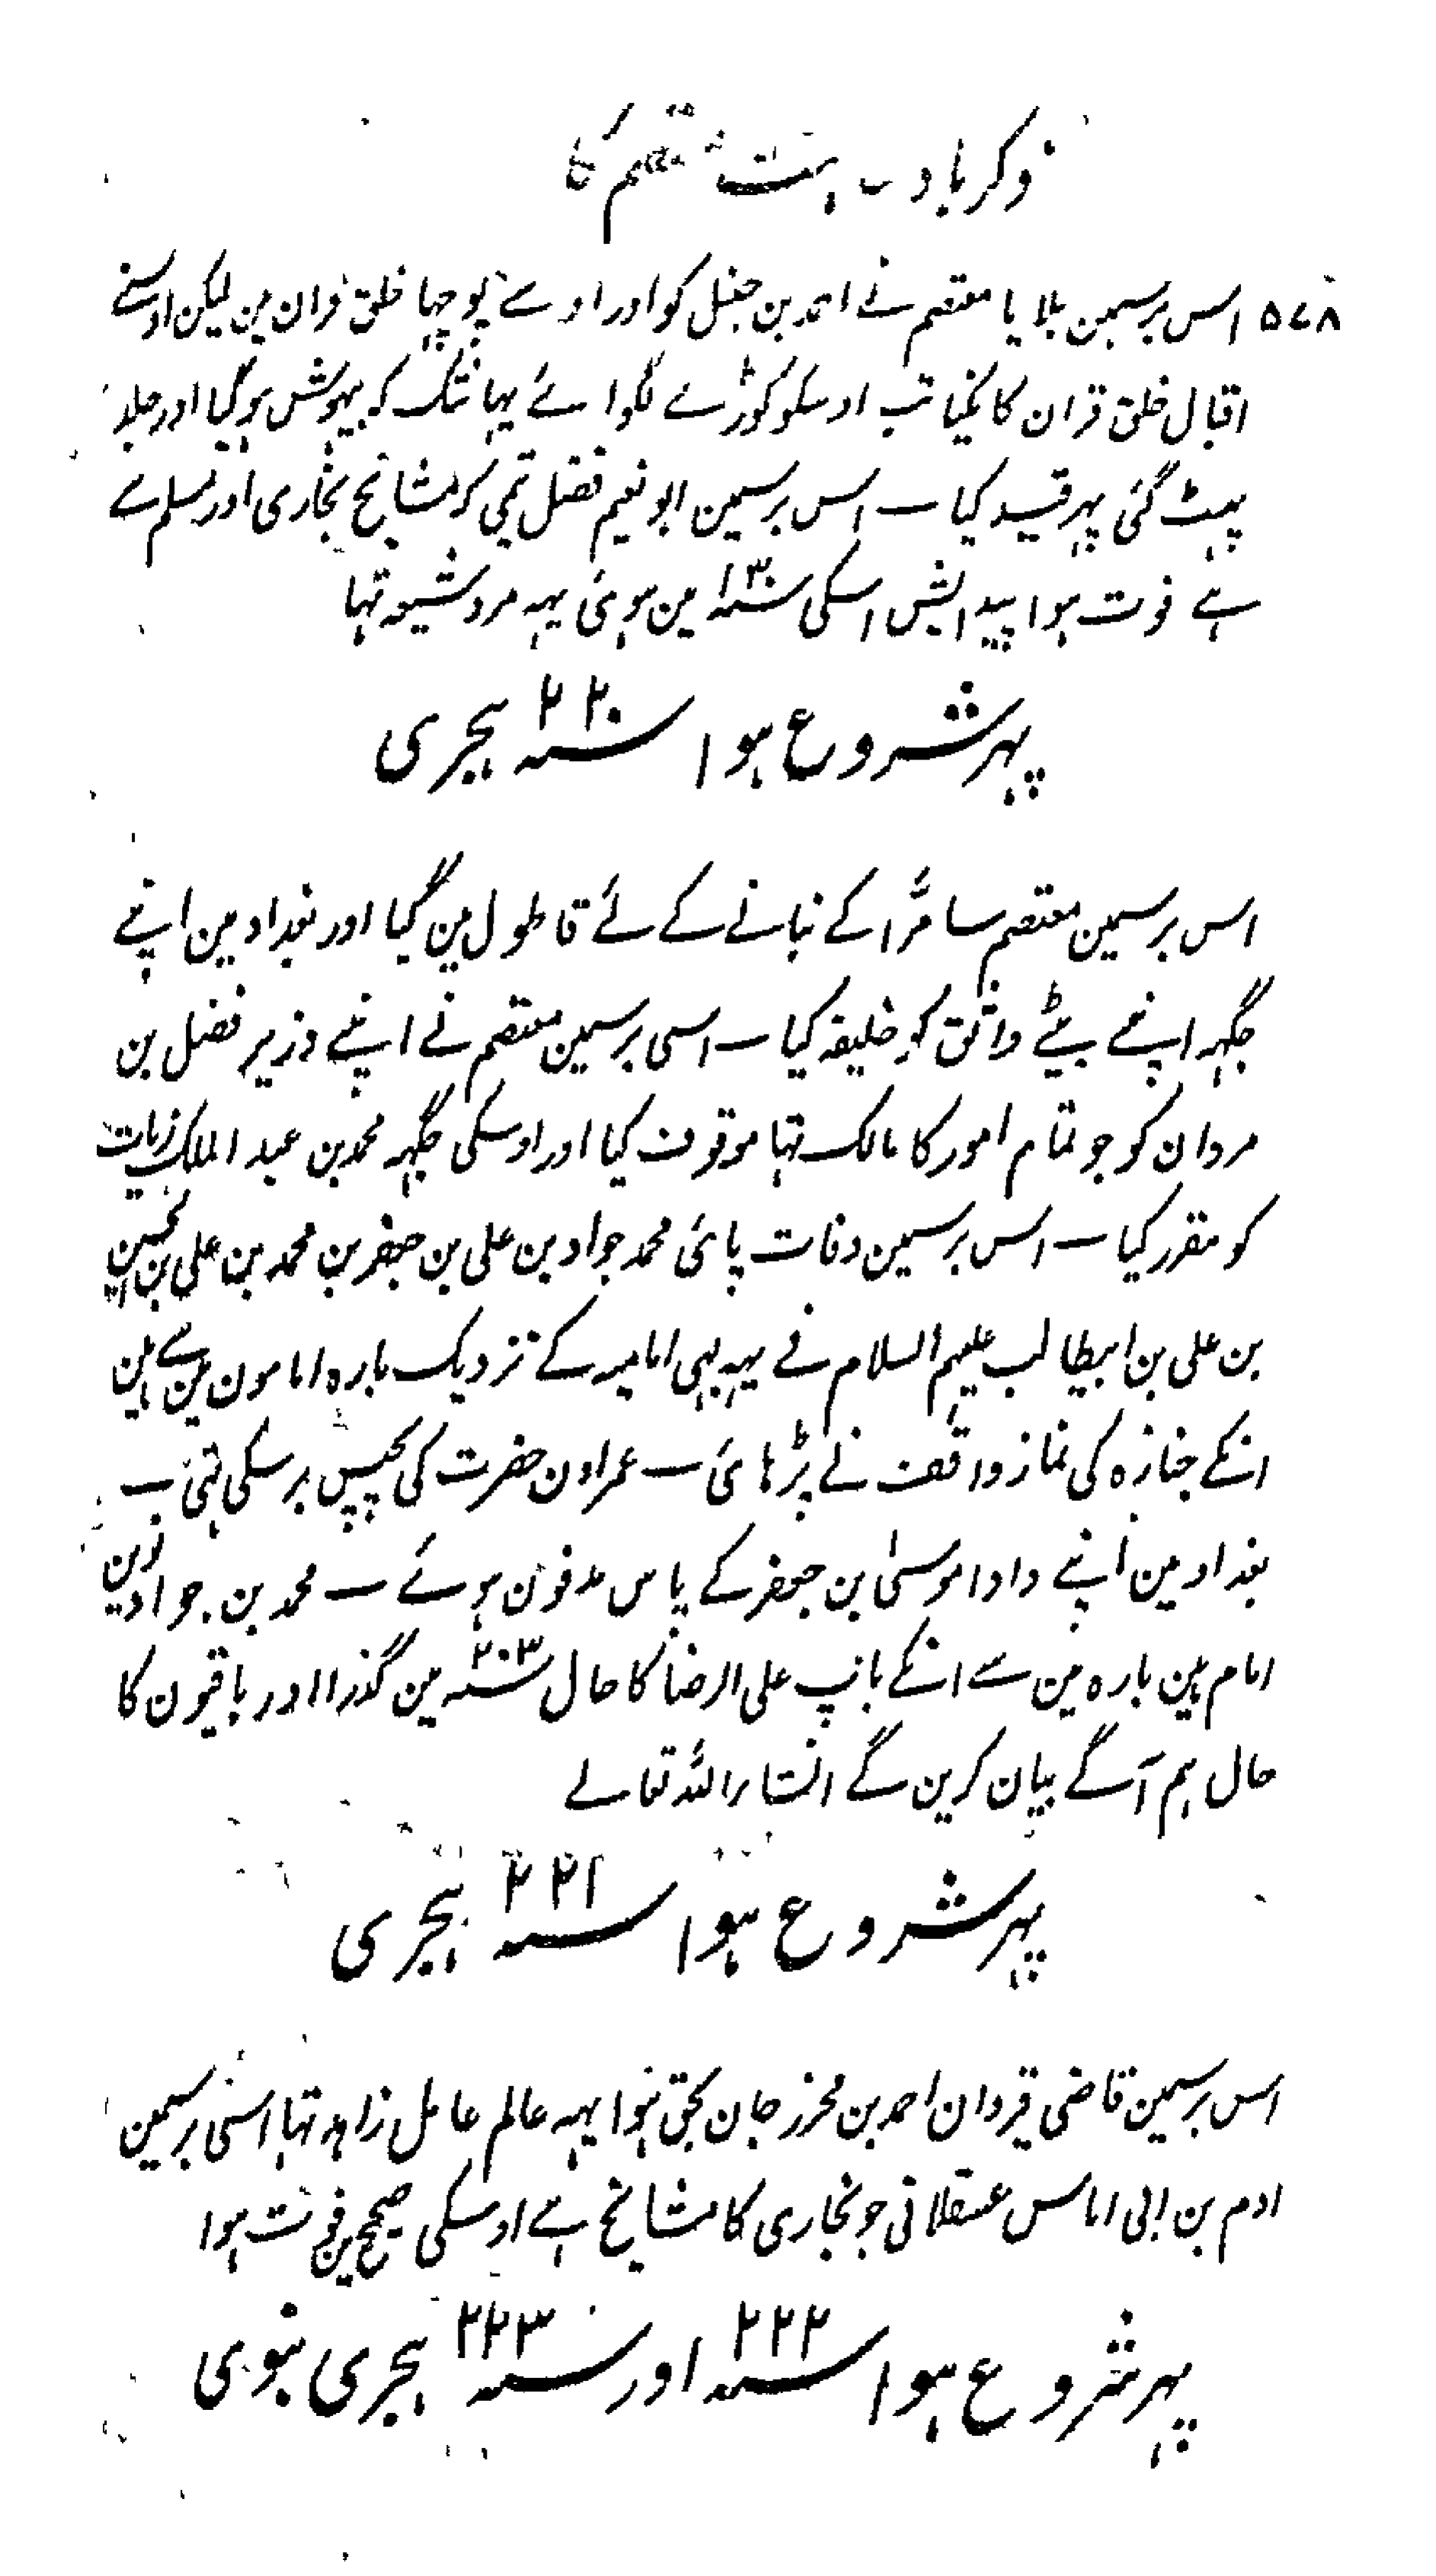 ذکر با و ہت معتصم کا
۵۷۸ اس برسمین بلا یا معتصم نے احمد بن حنبل کو اور اوسے پوچہا خلق قران مین لیکن اوسنے
اقبال خلق قران کا نکیا تب اوسکو کوڑے لگوائے یہانتک کہ بیہوش ہوگیا اور جلد
پہٹ گئی پہر قید کیا ـــ اس برسمین ابو نعیم فضل تمیمی کہ مشایخ بخاری اور مسلم سے
ہے فوت ہوا پیدایش اسکی سنہ ۱۳۰ مین ہوئی یہہ مرد شیعہ تہا
پہر شروع ہوا سنہ ۲۲۰ ہجری
اس برسمین معتصم سامرّا کے بنانے کے لئے قاطول مین گیا اور بغداد مین اپنے
جگہہ اپنے بیٹے واثق کو خلیفہ کیا ـــ اسی برسمین معتصم نے اپنے وزیر فضل بن
مروان کو جو تمام امور کا مالک تہا موقوف کیا اور اوسکی جگہہ محمد بن عبد الملک زیات
کو مقرر کیا ـــ اس برسمین وفات پائی محمد جواد بن علی بن جعفر بن محمد بن علی بن الحسین
بن علی بن ابیطالب علیہم السلام نے یہہ بہی امامیہ کے نزدیک بارہ امامون مین سے ہین
انکے جنازہ کی نماز واقف نے پڑہائی ـــ عمر اون حضرت کی پچیس برسکی تہی
بغداد مین اپنے دادا موسیٰ بن جعفر کے پاس مدفون ہوئے ـــ محمد بن جواد نوین
امام ہین بارہ مین سے انکے باپ علی الرضا کا حال سنہ ۲۰۳ مین گذرا اور باقیون کا
حال ہم آگے بیان کرین گے انشاءاللہ تعالے
پہر شروع ہوا سنہ ۲۲۱ ہجری
اس برسمین قاضی قیروان احمد بن محرز جان بحق ہوا یہہ عالم عامل زاہد تہا اسی برسمین
ادم بن ابی اماس عسقلانی جو بخاری کا مشایخ ہے اوسکی صحیح مین فوت ہوا
پہر شروع ہوا سنہ ۲۲۲ اور سنہ ۲۲۳ ہجری نبوی